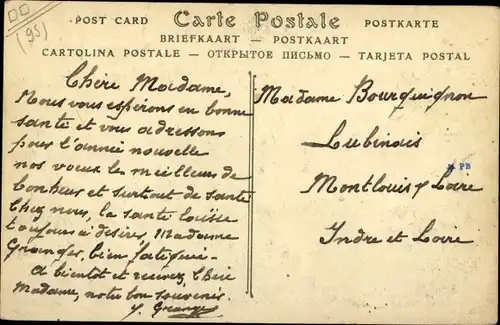 (95)
POST CARD Carte Postale POSTKARTE
BRIEFKAART - POSTKAART
CARTOLINA POSTALE - ОТКРЫТОЕ ПИСЬМО - TARJETA POSTAL
Chère Madame,
Nous vous espérons en bonne
santé et vous adressons
pour l'année nouvelle
nos voeux les meilleurs de
bonheur et surtout de santé
Chez nous, la santé laisse
toujours à désirer, Madame
Granger, bien fatiguée.
A bientôt et recevez, Chère
Madame, notre bon souvenir.
Madame Bourguignon
Lubinais
Montlouis s/ Loire
Indre et Loire
PB